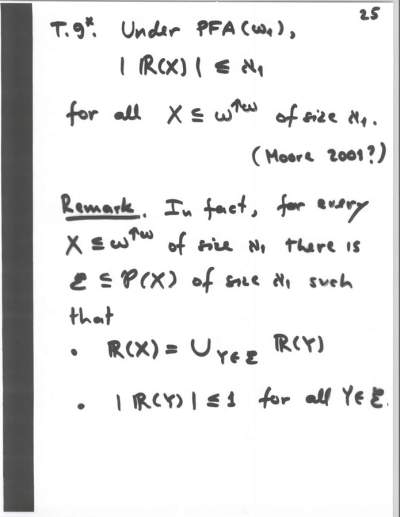 25
T.9*. Under PFA(ω₁),
|ℝ(X)| ≤ ℵ₁
for all X ⊆ ω^↑ω of size ℵ₁.
(Moore 2001?)
Remark. In fact, for every
X ⊆ ω^↑ω of size ℵ₁ there is
Σ ⊆ P(X) of size ℵ₁ such
that
• ℝ(X) = ∪_{Y∈Σ} ℝ(Y)
• |ℝ(Y)| ≤ 1 for all Y∈Σ.